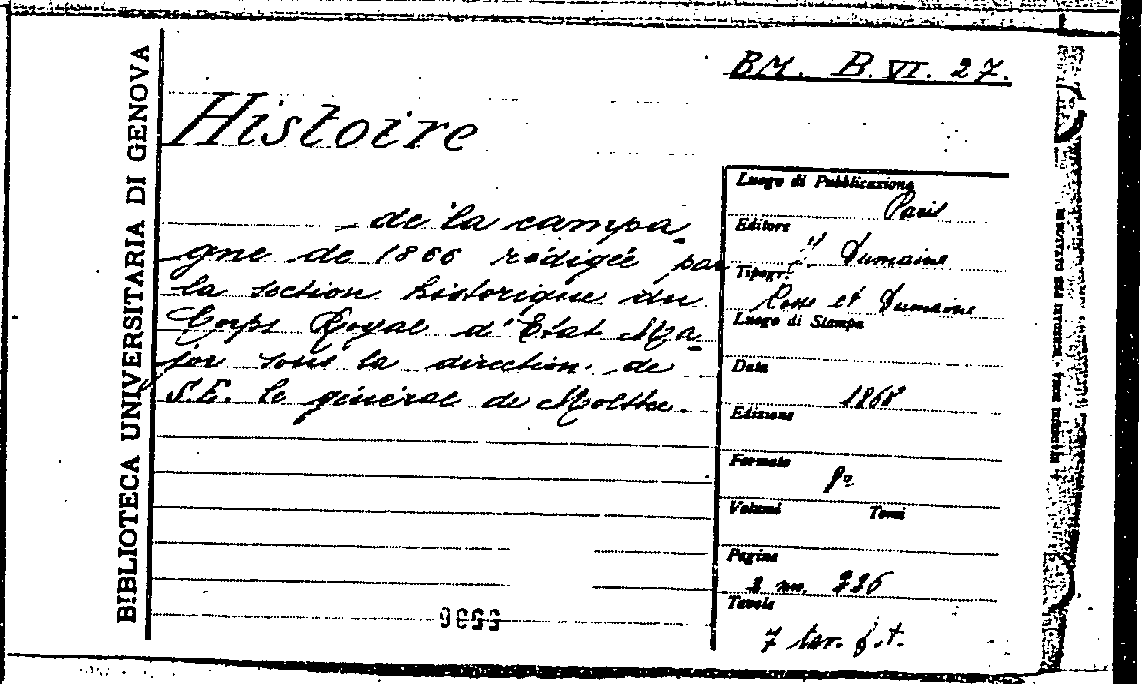 BIBLIOTECA UNIVERSITARIA DI GENOVA
BM. B. VI. 27.
Histoire
de la campa
gne de 1866 rédigée par
la section historique du
Corps Royal d'Etat Ma-
jor sous la direction de
S.E. le général de Moltke.
Luogo di Pubblicazione
Paris
Editore
J. Dumaine
Tipogr.
Cosse et Dumaine
Luogo di Stampa
Data
1868
Edizione
Formato
8º
Volumi Tomi
Pagine
2 nn. 226
Tavole
7 tav. f.t.